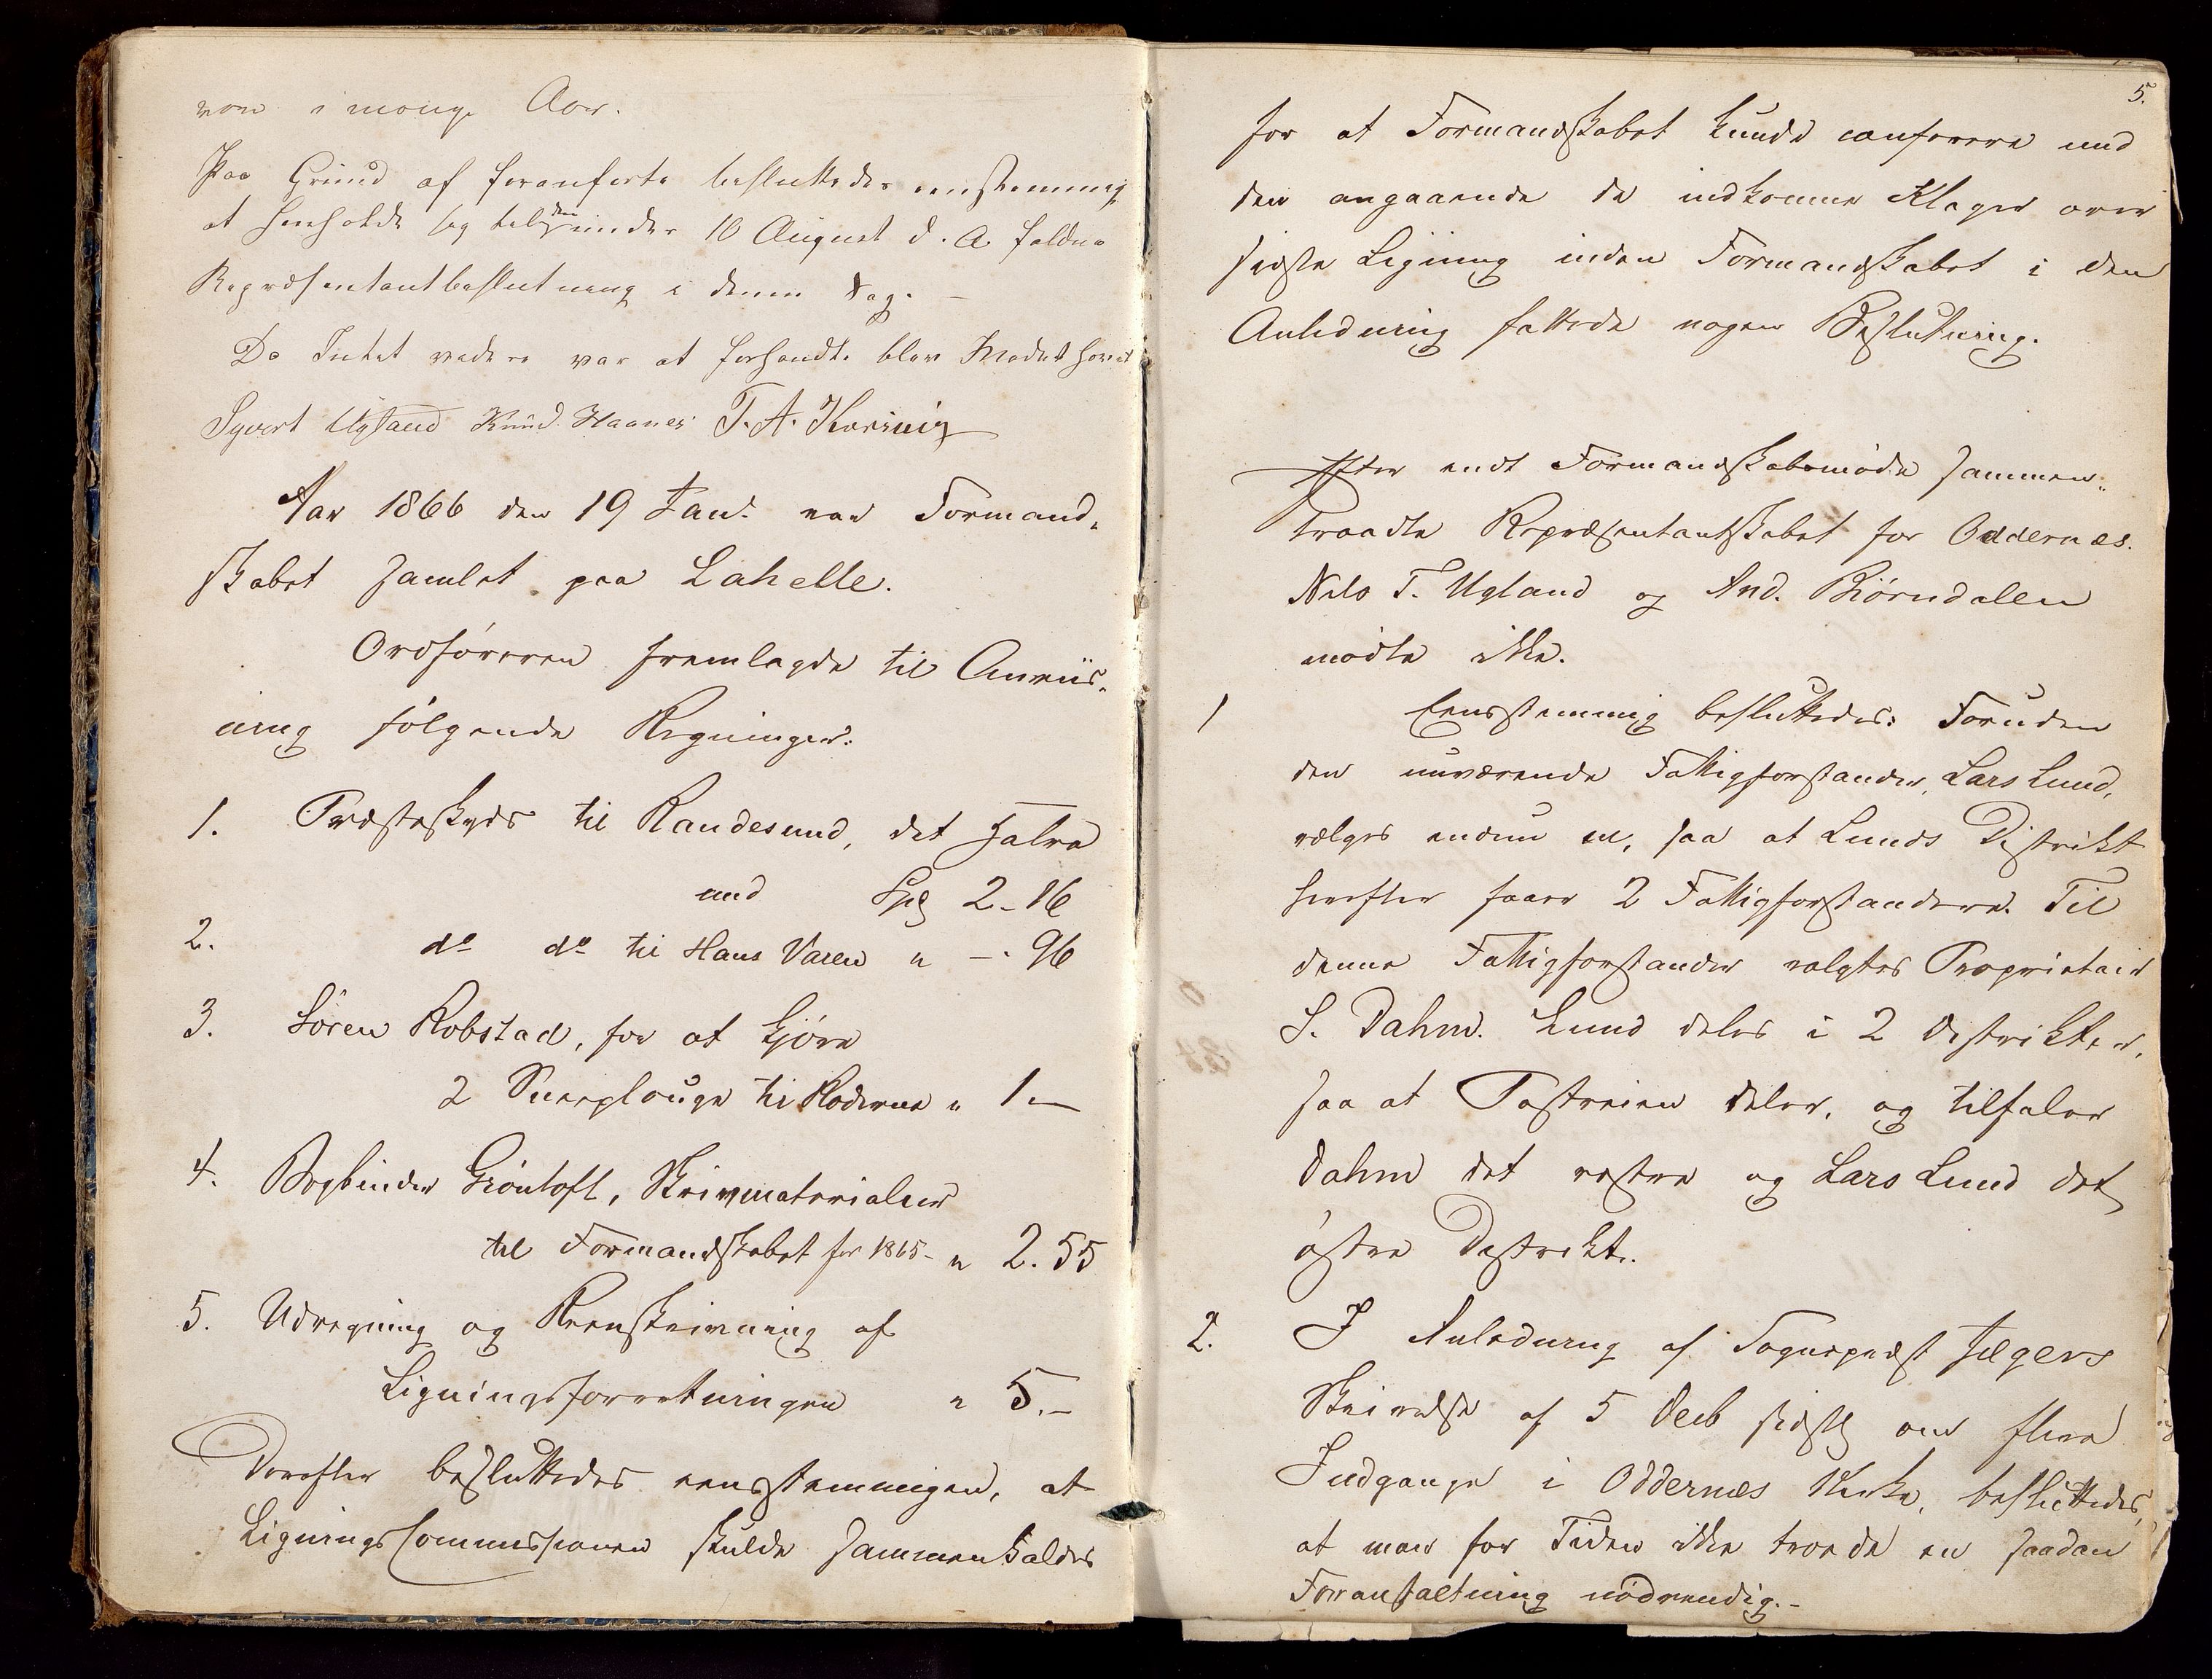 været i mange Aar.
Paa Grund af foranførte besluttedes eenstemmig
at henholde sig til den under 10 August d. A. faldne
Repræsentantbeslutning i denne Sag. –
Da Intet videre var at forhandle blev Mødet hævet
Syvert Ugland Knud Haanes T. A. Korsvig
Aar 1866 den 19 Jan. var Formand„
skabet samlet paa Lahelle.
Ordføreren fremlagde til Anviis„
ning følgende Regninger:
1. Præsteskyds til Randesund, det halve
med Spd 2-16
2. do do til Hans Varen " –. 96
3. Sören Robstad, for at kjøre
2 Sneeplouge til Roderne " 1.–
4. Bogbinder Gröntoft, Skrivmaterialier
til Formandskabet for 1865 - " 2.55
5. Udregning og Reenskrivning af
Ligningsforretningen " 5.–
Derefter besluttedes eensstemmigen, at
Ligningscommissionen skulde sammenkaldes
5.
for at Formandskabet kunde conferere med
den angaaende de indkomne Klager over
sidste Ligning inden Formandskabet i den
Anledning fattede nogen Beslutning.
Efter endt Formandskabsmöde sammen„
traadte Repræsentantskabet for Oddernæs.
Nils T. Ugland og And. Björndalen
mødte ikke.
1 Eensstemmig besluttedes: Foruden
den nuværende Fattigforstander, Lars Lund,
vælges endnu en, saa at Lunds Distrikt
herefter faaer 2 Fattigforstandere. Til
denne Fattigforstander valgtes Proprietair
S. Dahm. Lund deles i 2 Distrikter,
saa at Postveien deler, og tilfaler
Dahm det vestre og Lars Lund det
østre Distrikt.
2. I Anledning af Sognepræst Jægers
Skrivelse af 5 Decb sidstl om flere
Indgange i Oddernæs Kirke, besluttedes,
at man for Tiden ikke troede en saadan
Foranstaltning nödvendig.–